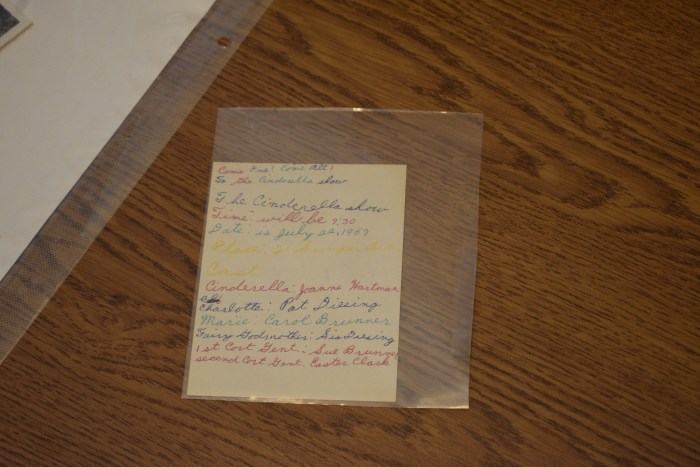 Come One! Come All!
To the Cinderella show
The Cinderella show
Time: will be 7:30
Date: is July 22, 1957
Place:
Court
Cinderella: Joanne Hartman
Charlotte: Pat Diesing
Marie: Carol Brunner
Fairy Godmother: Sis Diesing
1st Cort Gent: Sue Brunner
second Cort Gent. Easter Clark